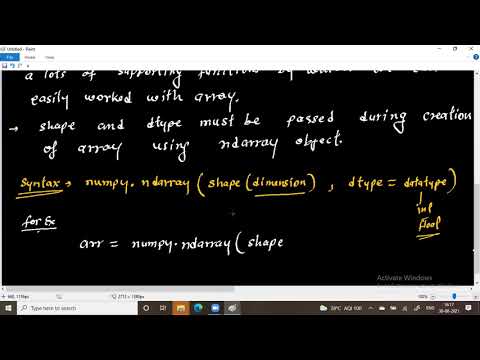 Untitled - Paint
File Home View
a lots of supporting functions by which we can
easily worked with array.
→ shape and dtype must be passed during creation
of array using ndarray object.
Syntax → numpy.ndarray (shape (dimension) , dtype = datatype)
float
for Ex
arr = numpy.ndarray (shape
Activate Windows
Type here to search
28°C AQI 100
ENG
16:17
30-08-2021